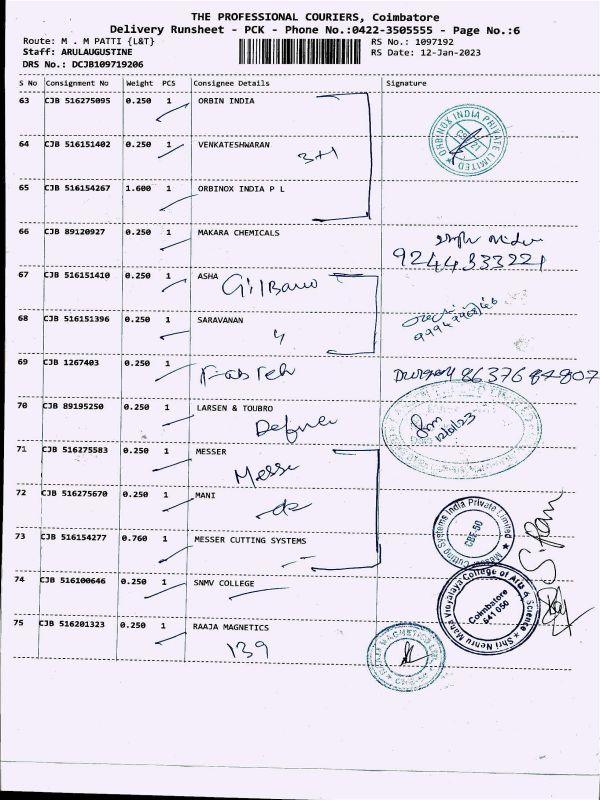 THE PROFESSIONAL COURIERS, Coimbatore
Delivery Runsheet - PCK - Phone No.:0422-3505555 - Page No.:6
Route: M . M PATTI {L&T}
RS No.: 1097192
Staff: ARULAUGUSTINE
RS Date: 12-Jan-2023
DRS No.: DCJB109719206
S No Consignment No Weight PCS Consignee Details Signature
63 CJB 516275095 0.250 1 ORBIN INDIA
ORBINOX INDIA PRIVATE LIMITED
64 CJB 516151402 0.250 1 VENKATESHWARAN
3+1
65 CJB 516154267 1.600 1 ORBINOX INDIA P L
66 CJB 89120927 0.250 1 MAKARA CHEMICALS
9244333221
67 CJB 516151410 0.250 1 ASHA
68 CJB 516151396 0.250 1 SARAVANAN
4
69 CJB 1267403 0.250 1
70 CJB 89195250 0.250 1 LARSEN & TOUBRO
12/01/23
71 CJB 516275583 0.250 1 MESSER
Messe
72 CJB 516275670 0.250 1 MANI
Messer Cutting Systems India Private Limited
73 CJB 516154277 0.760 1 MESSER CUTTING SYSTEMS
74 CJB 516100646 0.250 1 SNMV COLLEGE
Shri Nehru Maha Vidyalaya College of Arts & Science
Coimbatore
641 050
75 CJB 516201323 0.250 1 RAAJA MAGNETICS
139